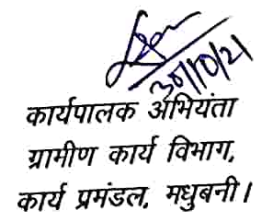 30/10/21
कार्यपालक अभियंता
ग्रामीण कार्य विभाग,
कार्य प्रमंडल, मधुबनी।